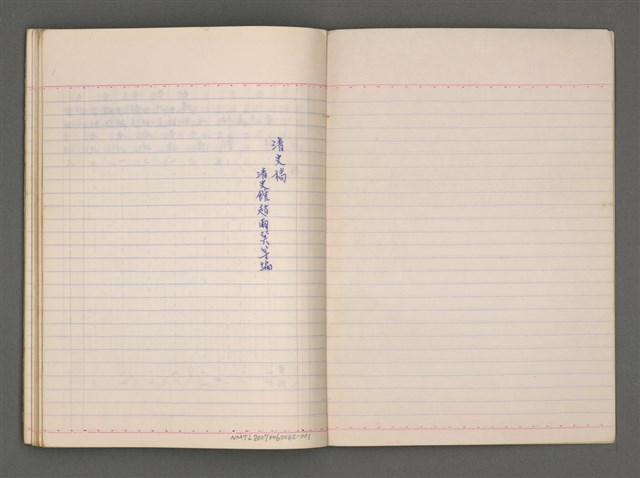 清史稿
清史館趙爾巽等編